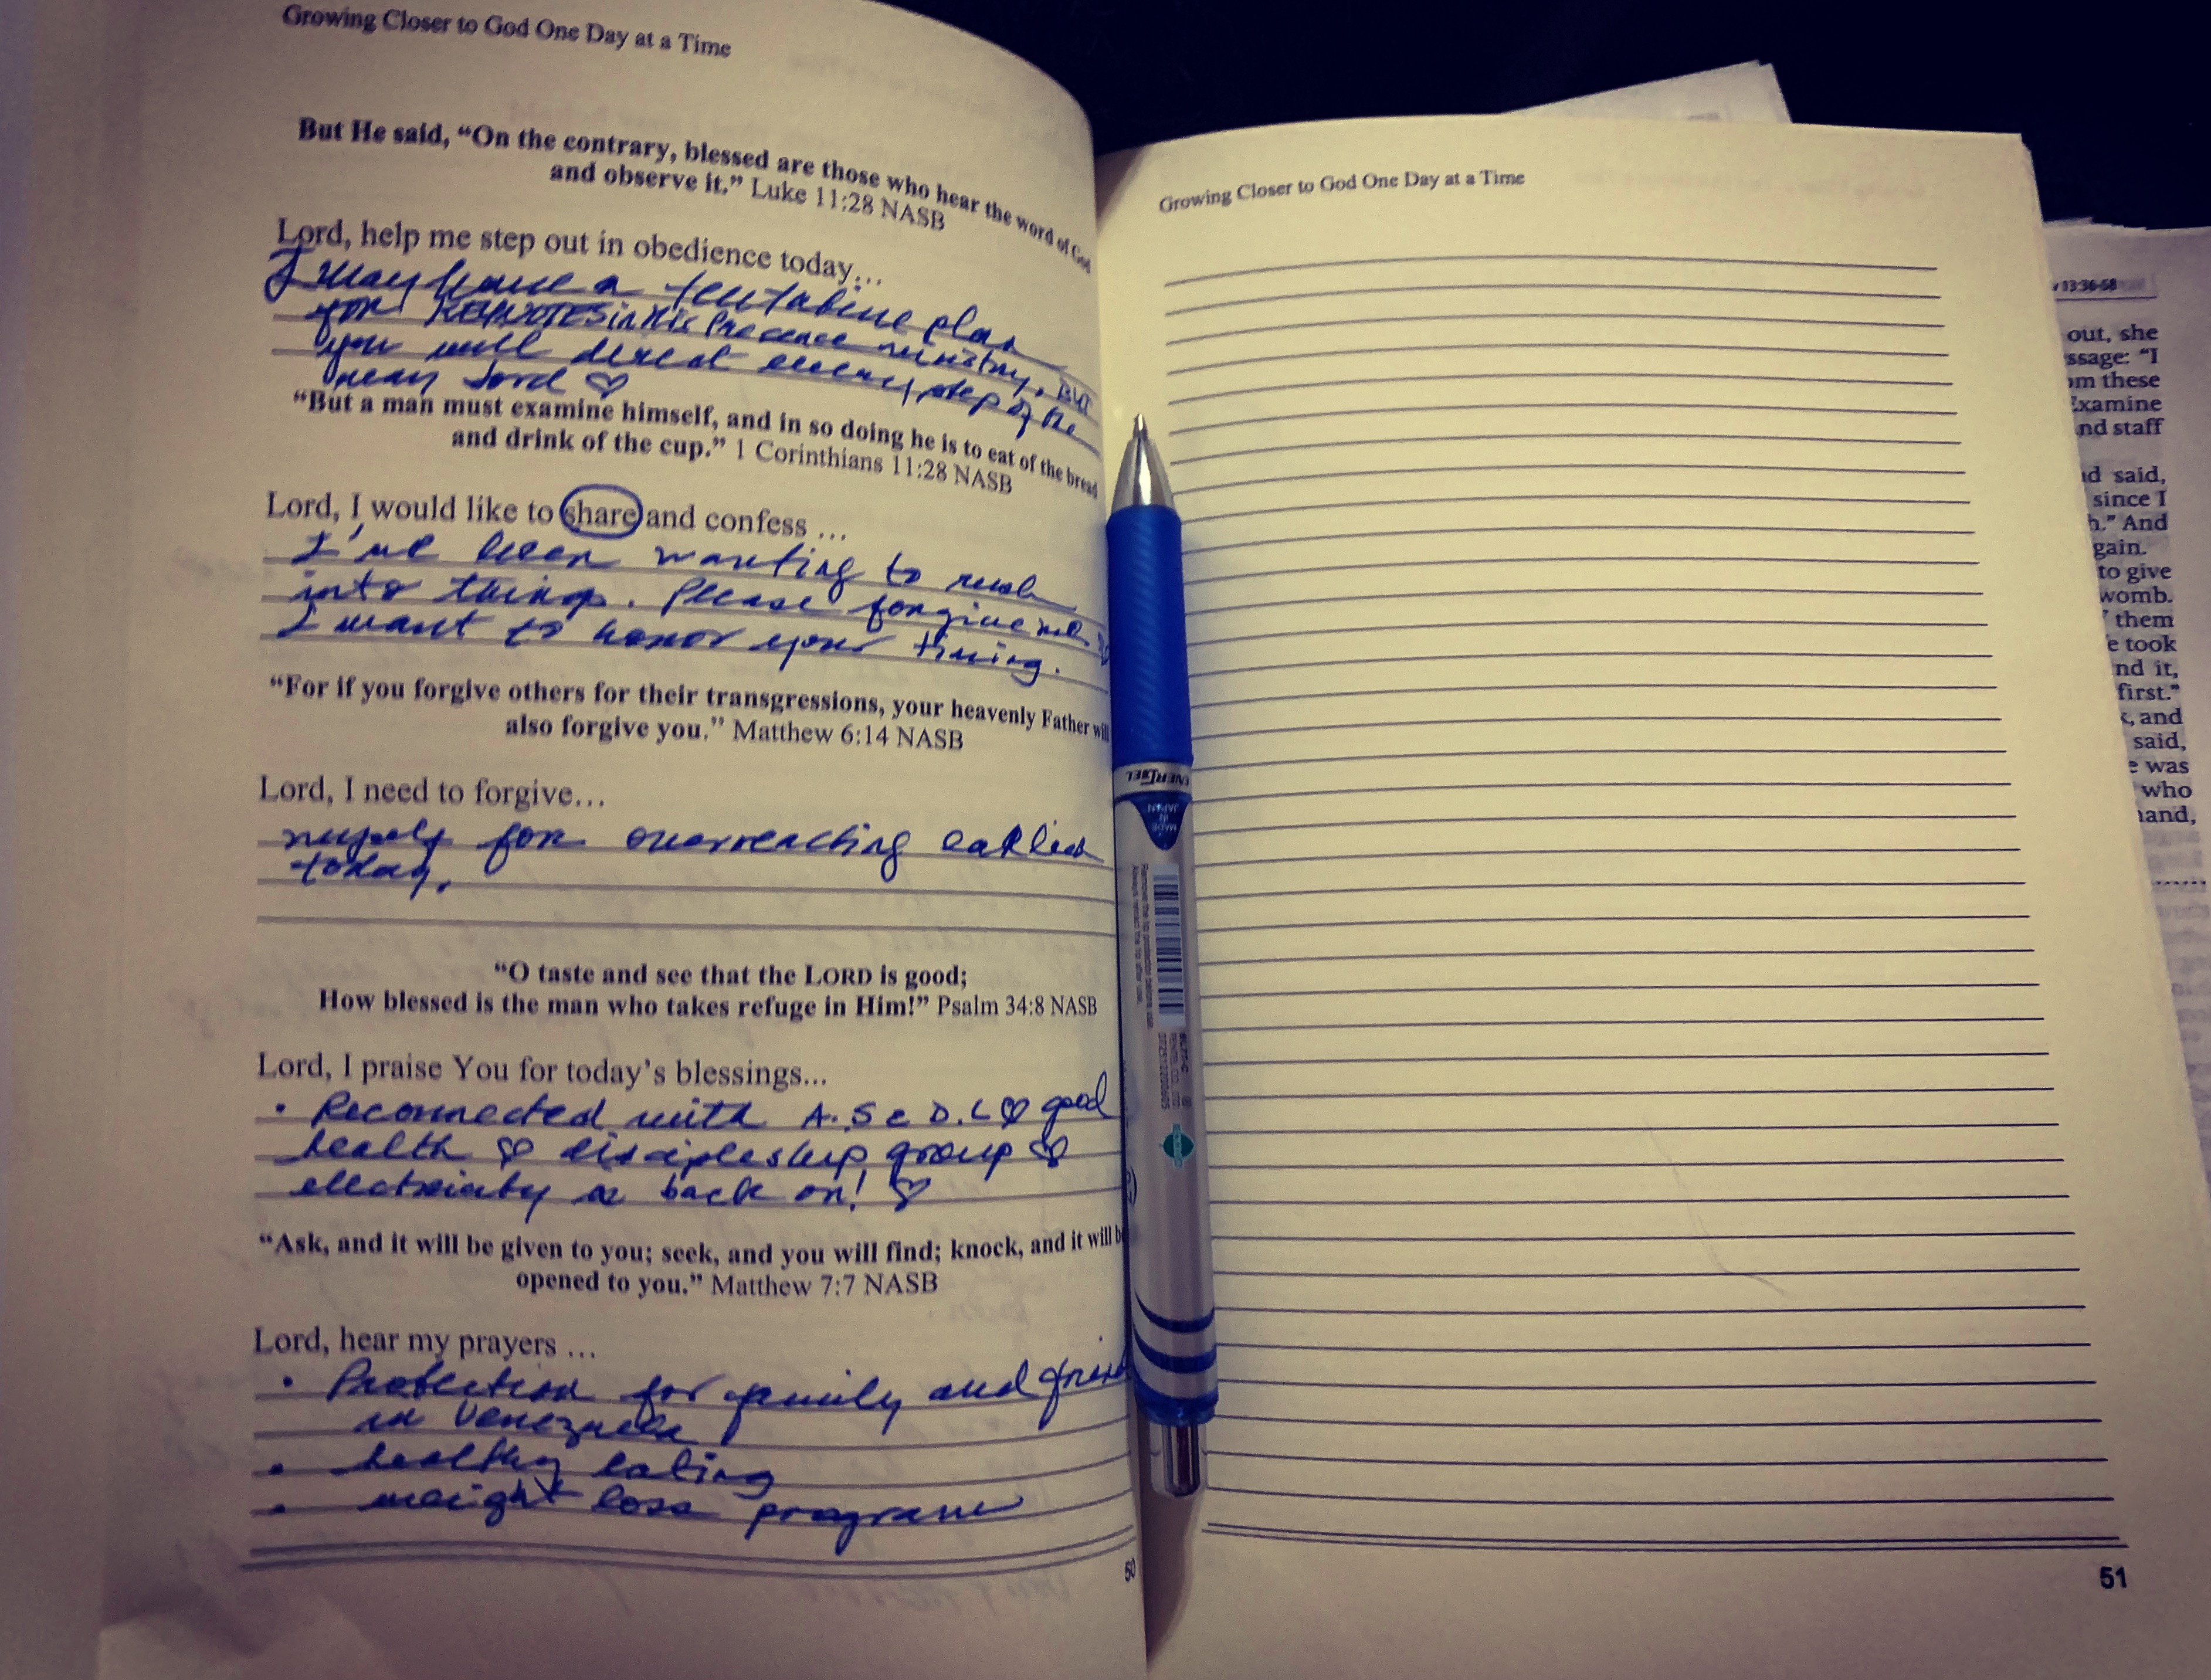 Growing Closer to God One Day at a Time
But He said, “On the contrary, blessed are those who hear the word of God
and observe it.” Luke 11:28 NASB
Lord, help me step out in obedience today...
I may have a tentative plan
for KEYNOTES in His Presence ministry, But
you will direct every step of the
way Lord ♡
“But a man must examine himself, and in so doing he is to eat of the bread
and drink of the cup.” 1 Corinthians 11:28 NASB
Lord, I would like to share and confess ...
I've been wanting to rush
into things. Please forgive me.
I want to honor your timing.
“For if you forgive others for their transgressions, your heavenly Father will
also forgive you.” Matthew 6:14 NASB
Lord, I need to forgive...
myself for overreacting earlier
today.
“O taste and see that the LORD is good;
How blessed is the man who takes refuge in Him!” Psalm 34:8 NASB
Lord, I praise You for today’s blessings...
• Reconnected with A.S e D.L ♡ good
health ♡ discipleship group ♡
electricity is back on! ♡
“Ask, and it will be given to you; seek, and you will find; knock, and it will be
opened to you.” Matthew 7:7 NASB
Lord, hear my prayers ...
• Protection for family and friend
in Venezuela
• healthy eating
• weight loss program
50
Growing Closer to God One Day at a Time
51
ENERGEL
MADE
IN
JAPAN
13:36-58
out, she
ssage: “I
om these
Examine
nd staff
d said,
since I
h.” And
gain.
to give
womb.
them
e took
nd it,
first.”
, and
said,
e was
who
hand,